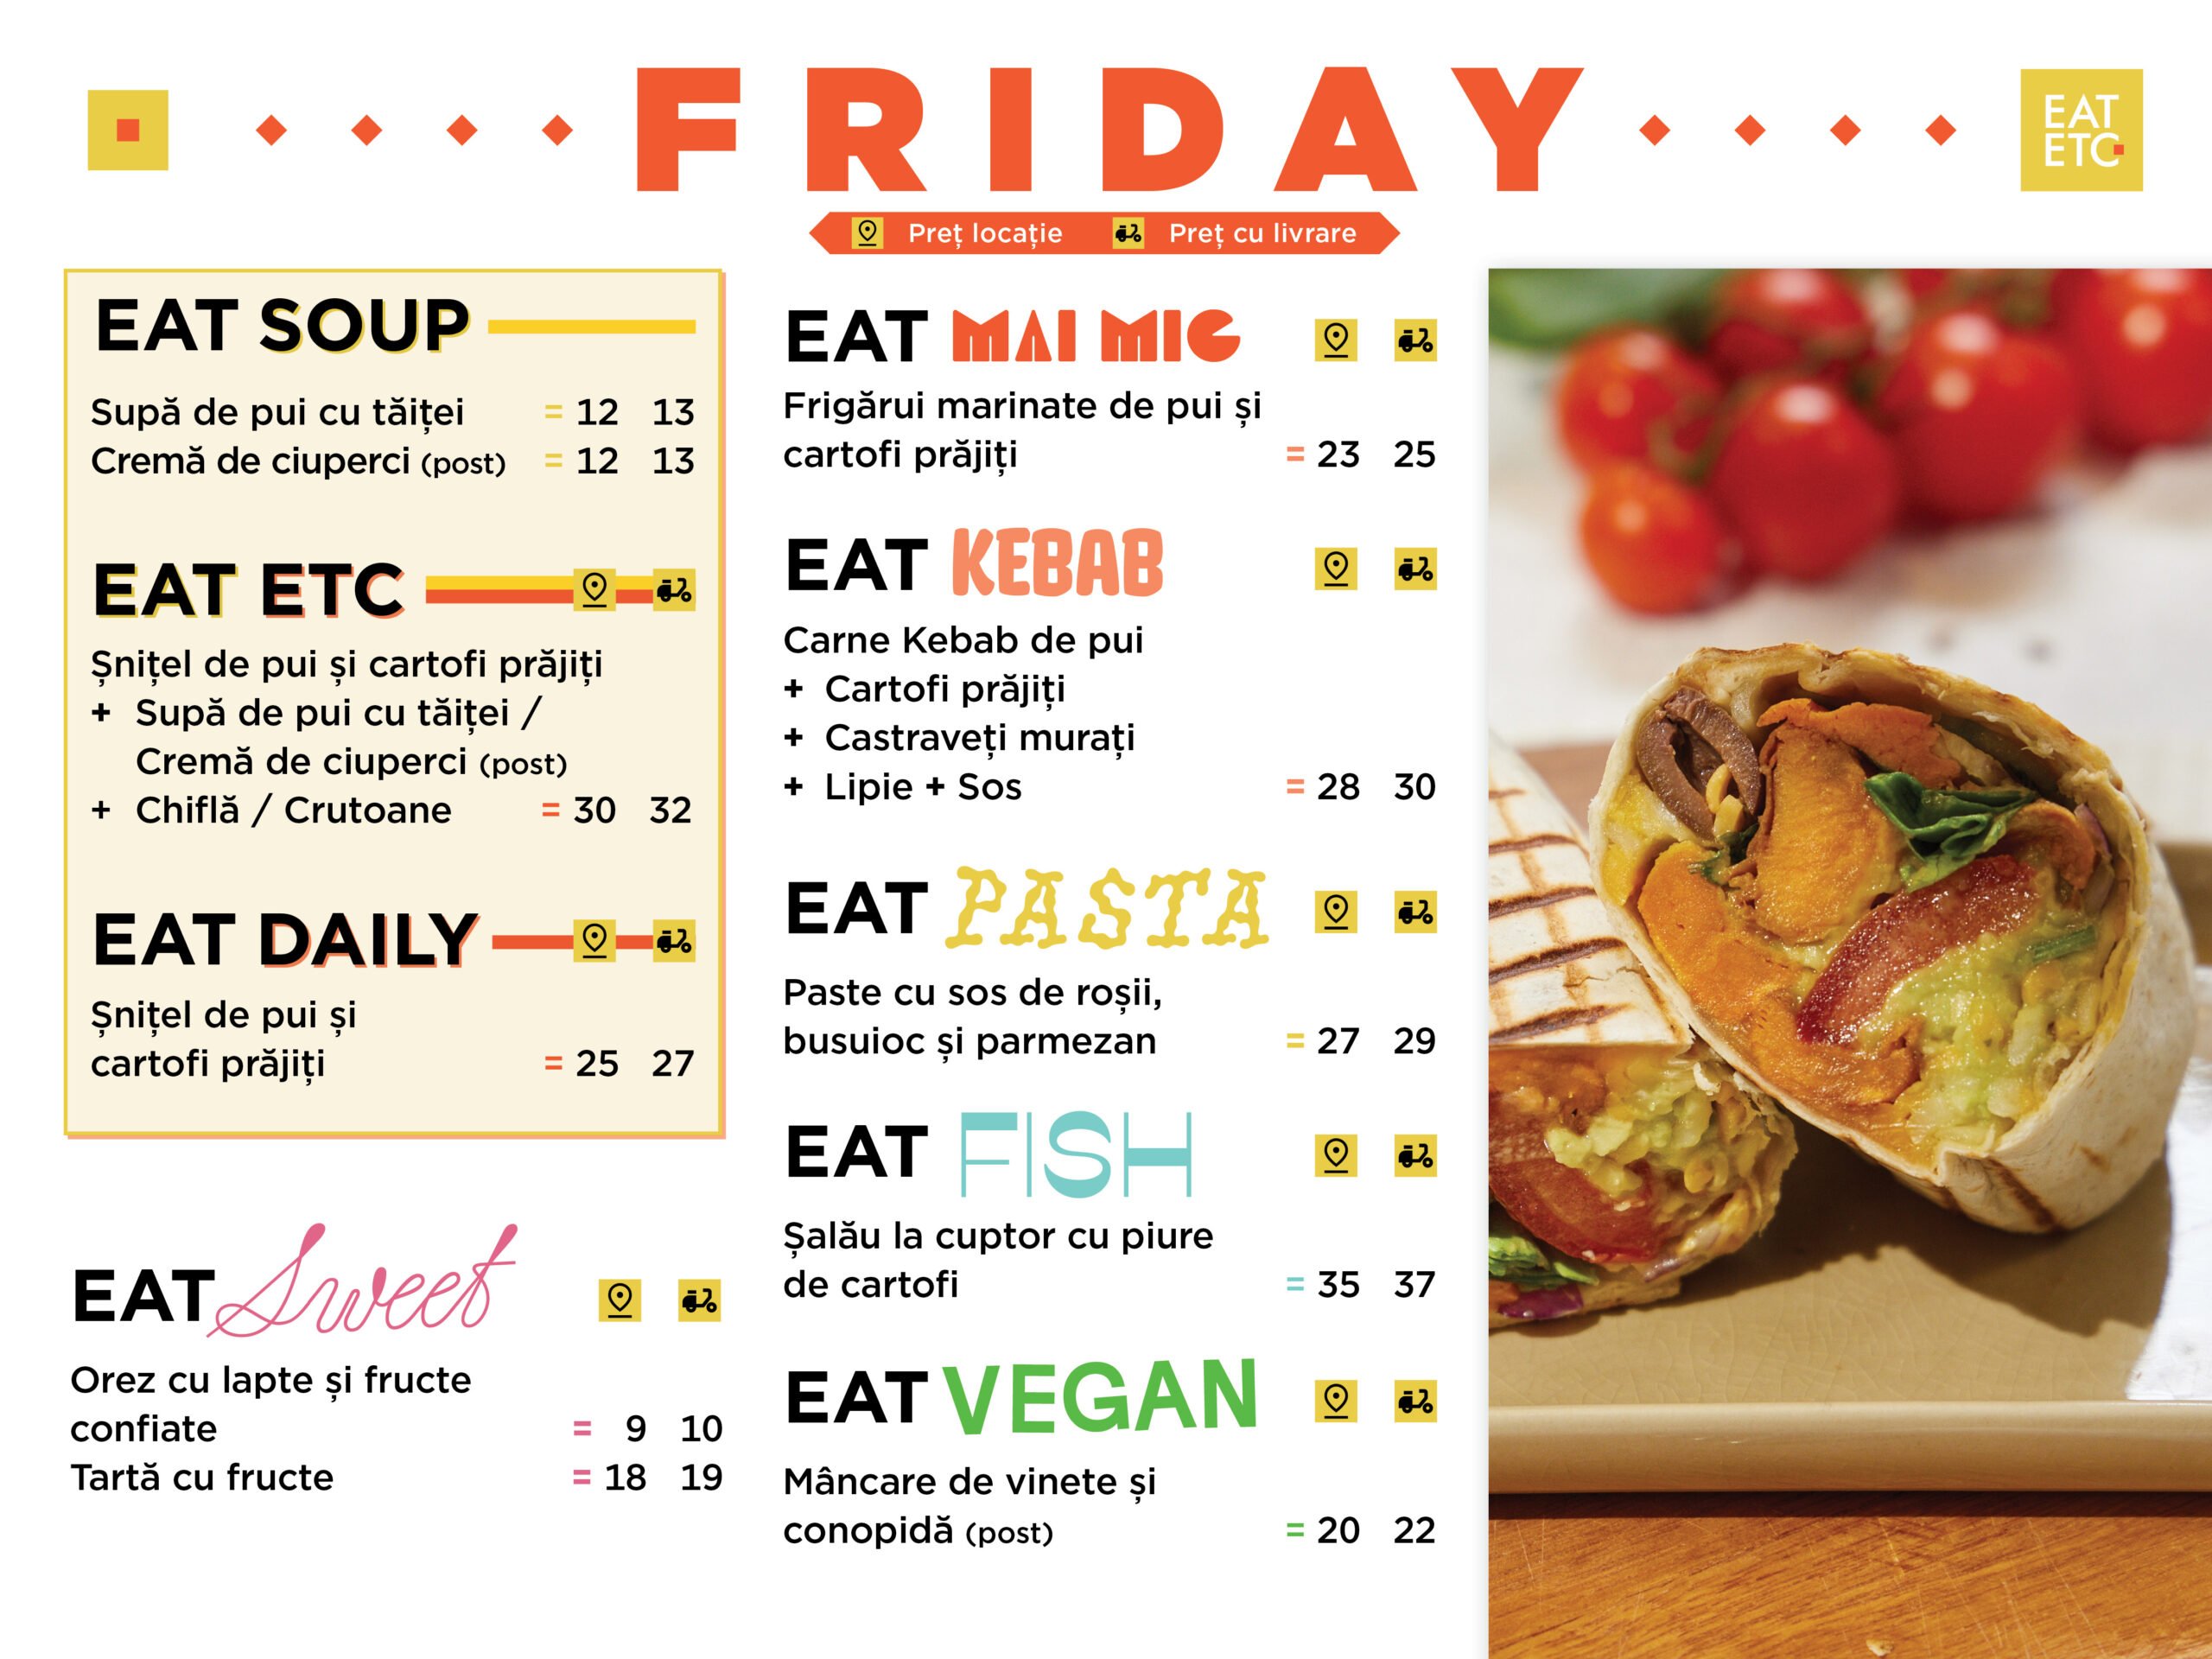 FRIDAY
EAT
ETC
Preț locație Preț cu livrare
EAT SOUP
Supă de pui cu tăiței = 12 13
Cremă de ciuperci (post) = 12 13
EAT ETC
Șnițel de pui și cartofi prăjiți
+ Supă de pui cu tăiței /
Cremă de ciuperci (post)
+ Chiflă / Crutoane = 30 32
EAT DAILY
Șnițel de pui și
cartofi prăjiți = 25 27
EAT Sweet
Orez cu lapte și fructe
confiate = 9 10
Tartă cu fructe = 18 19
EAT MAI MIC
Frigărui marinate de pui și
cartofi prăjiți = 23 25
EAT KEBAB
Carne Kebab de pui
+ Cartofi prăjiți
+ Castraveți murați
+ Lipie + Sos = 28 30
EAT PASTA
Paste cu sos de roșii,
busuioc și parmezan = 27 29
EAT FISH
Șalău la cuptor cu piure
de cartofi = 35 37
EAT VEGAN
Mâncare de vinete și
conopidă (post) = 20 22